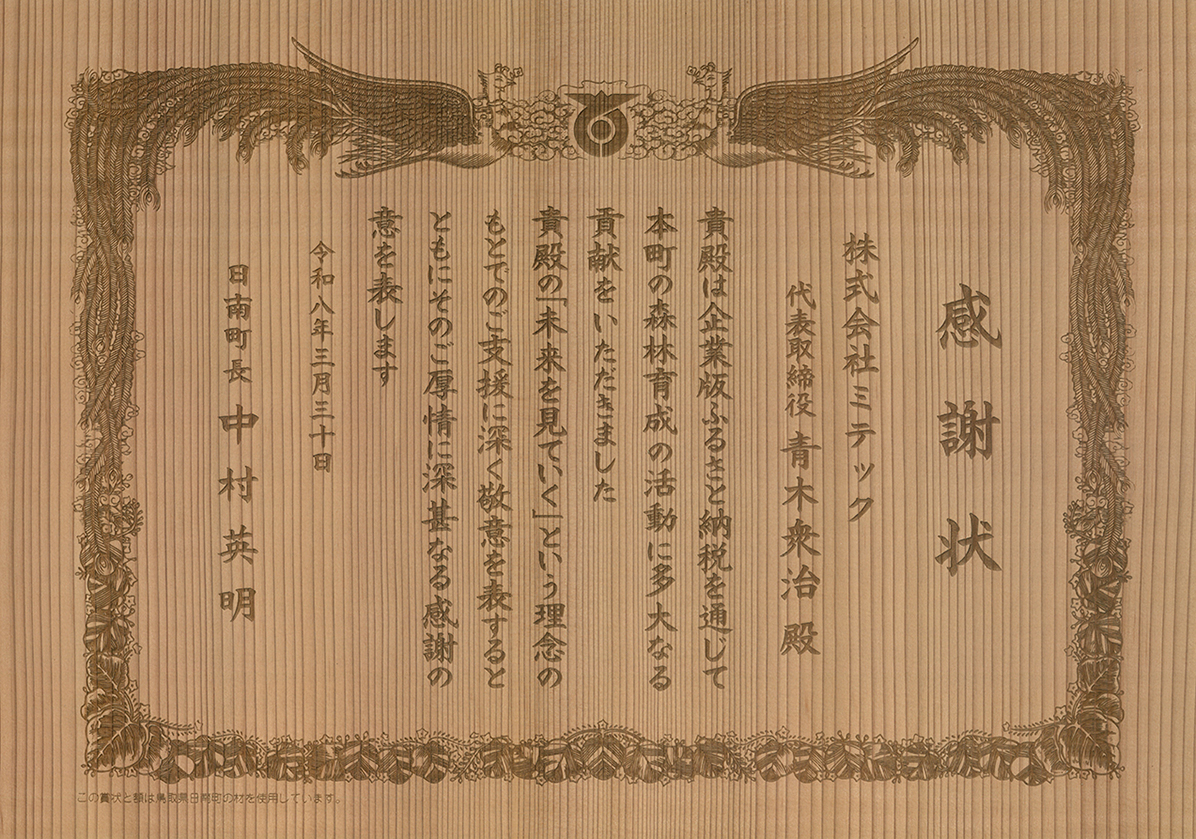 感謝状
株式会社ミテック
代表取締役 青木衆治殿
貴殿は企業版ふるさと納税を通じて
本町の森林育成の活動に多大なる
貢献をいただきました
貴殿の「未来を見ていく」という理念の
もとでのご支援に深く敬意を表すると
ともにそのご厚情に深甚なる感謝の
意を表します
令和八年三月三十日
日南町長 中村英明
この賞状と額は鳥取県日南町の材を使用しています。